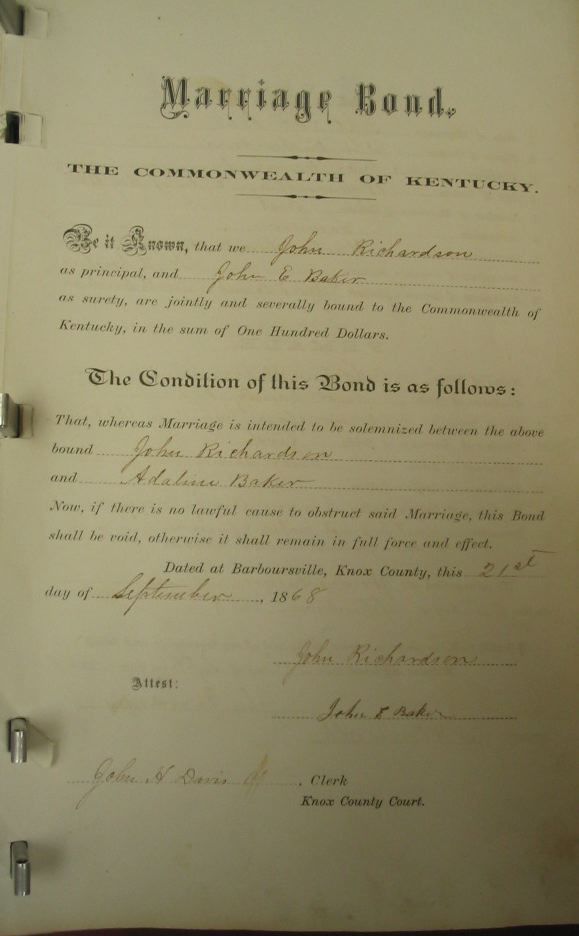 Marriage Bond.
THE COMMONWEALTH OF KENTUCKY.
Be it Known, that we John Richardson
as principal, and John E Baker
as surety, are jointly and severally bound to the Commonwealth of
Kentucky, in the sum of One Hundred Dollars.
The Condition of this Bond is as follows:
That, whereas Marriage is intended to be solemnized between the above
bound John Richardson
and Adaline Baker
Now, if there is no lawful cause to obstruct said Marriage, this Bond
shall be void, otherwise it shall remain in full force and effect.
Dated at Barboursville, Knox County, this 21st
day of September, 1868
John Richardson
Attest:
John E Baker
John H Davis , Clerk
Knox County Court.